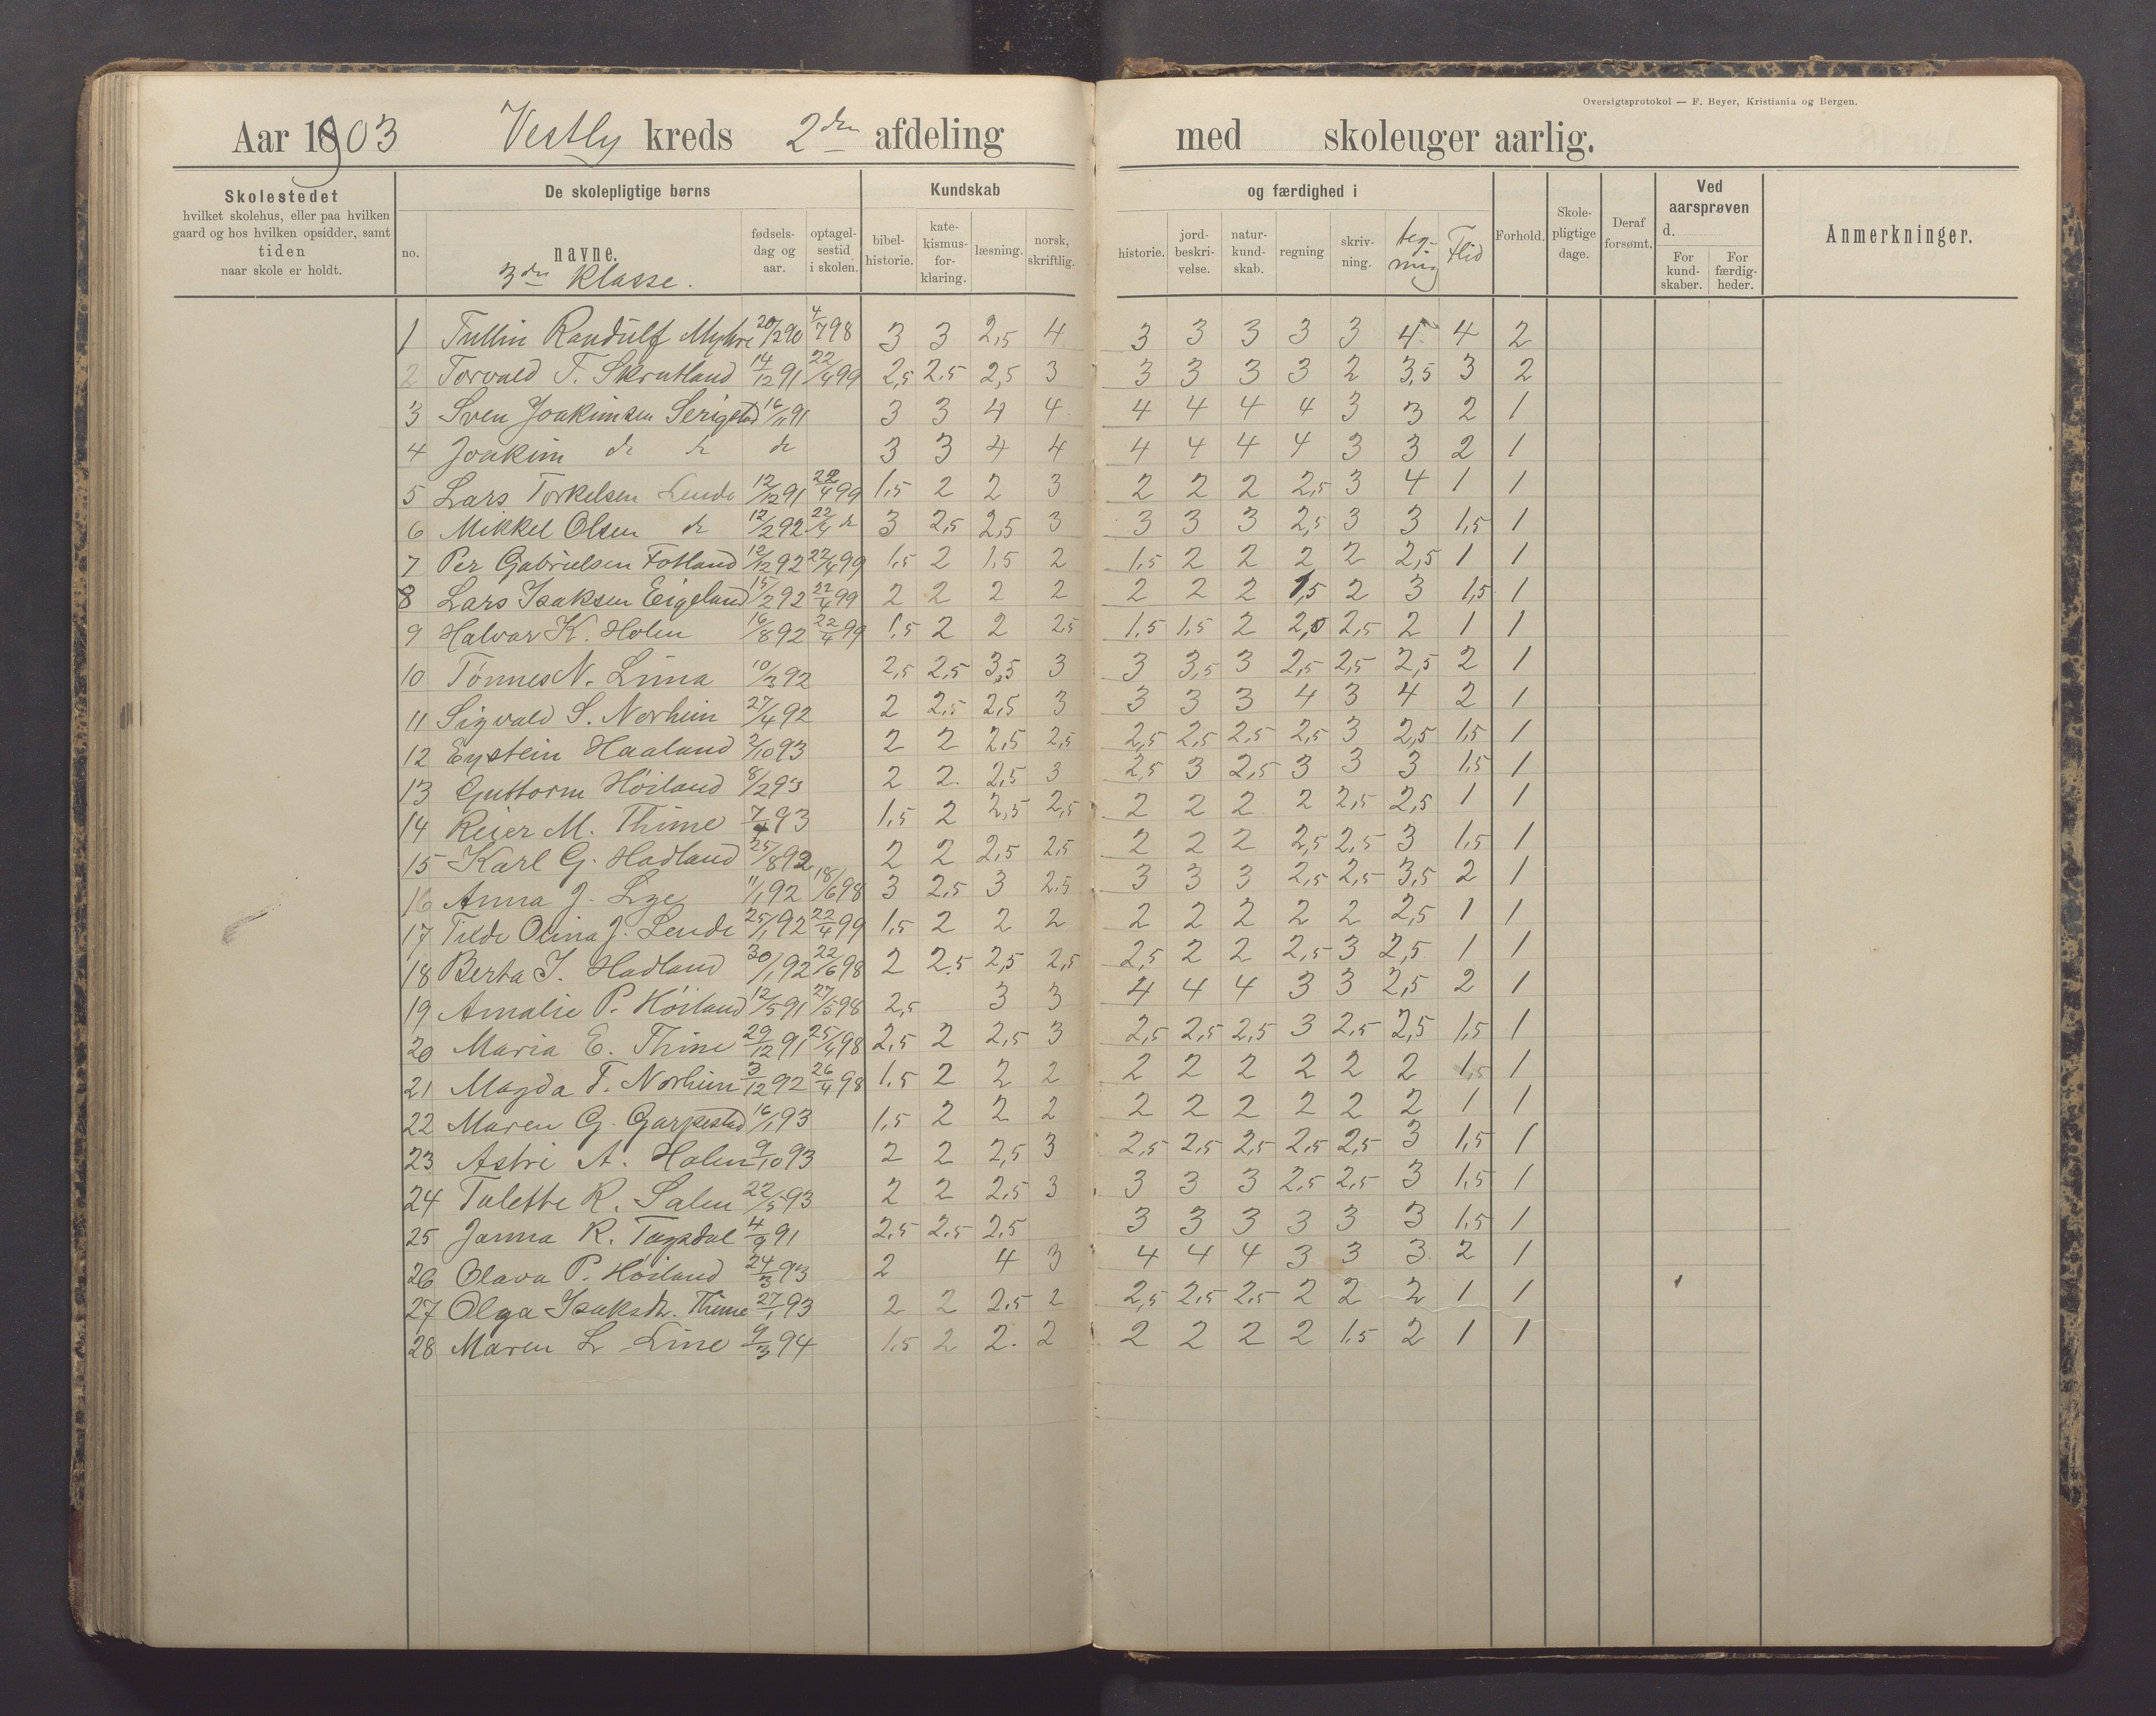 Oversigtsprotokol — F. Beyer, Kristiania og Bergen.
Aar 1903 Vestly kreds 2den afdeling med skoleuger aarlig.
Skolestedet
hvilket skolehus, eller paa hvilken
gaard og hos hvilken opsidder, samt
tiden
naar skole er holdt.
De skolepligtige børns
no.
navne.
3die Klasse.
fødsels-
dag og
aar.
optagel-
sestid
i skolen.
Kundskab
bibel-
historie.
kate-
kismus-
for-
klaring.
læsning.
norsk,
skriftlig.
og færdighed i
historie.
jord-
beskri-
velse.
natur-
kund-
skab.
regning
skriv-
ning.
teg-
ning
Flid
Forhold.
Skole-
pligtige
dage.
Deraf
forsømt.
Ved
aarsprøven
d.
For
kund-
skaber.
For
færdig-
heder.
Anmerkninger.
1 Tullin Randulf Myhre 20/2 90 4/7 98 3 3 2,5 4 3 3 3 3 3 4 4 2
2 Torvald T. Skrutland 14/12 91 22/4 99 2,5 2,5 2,5 3 3 3 3 3 2 3,5 3 2
3 Sven Joakimsen Serigstad 16/11 91 3 3 4 4 4 4 4 4 3 3 2 1
4 Joakim do do do 3 3 4 4 4 4 4 4 3 3 2 1
5 Lars Torkelsen Lende 12/12 91 22/4 99 1,5 2 2 3 2 2 2 2,5 3 4 1 1
6 Mikkel Olsen do 12/2 92 22/4 do 3 2,5 2,5 3 3 3 3 2,5 3 3 1,5 1
7 Per Gabrielsen Fotland 12/12 92 22/4 99 1,5 2 1,5 2 1,5 2 2 2 2 2,5 1 1
8 Lars Isaksen Eigeland 15/2 92 22/4 99 2 2 2 2 2 2 2 1,5 2 3 1,5 1
9 Halvar K. Holen 16/8 92 22/4 99 1,5 2 2 2,5 1,5 1,5 2 2,0 2,5 2 1 1
10 Tønnes N. Lima 10/3 92 2,5 2,5 3,5 3 3 3,5 3 2,5 2,5 2,5 2 1
11 Sigvald S. Norheim 27/4 92 2 2,5 2,5 3 3 3 3 4 3 4 2 1
12 Eystein Haaland 2/10 93 2 2 2,5 2,5 2,5 2,5 2,5 2,5 3 2,5 1,5 1
13 Guttorm Höiland 8/2 93 2 2 2,5 3 2,5 3 2,5 3 3 3 1,5 1
14 Reier M. Thime 7/4 93 1,5 2 2,5 2,5 2 2 2 2 2,5 2,5 1 1
15 Karl G. Hadland 25/8 92 2 2 2,5 2,5 2 2 2 2,5 2,5 3 1,5 1
16 Anna J. Lye 11/1 92 18/6 98 3 2,5 3 2,5 3 3 3 2,5 2,5 3,5 2 1
17 Tilda Olina J. Lende 25/1 92 22/4 99 1,5 2 2 2 2 2 2 2 2 2,5 1 1
18 Berta I. Hadland 30/1 92 22/6 98 2 2,5 2,5 2,5 2,5 2 2 2,5 3 2,5 1 1
19 Amalie P. Höiland 12/5 91 27/5 98 2,5 3 3 4 4 4 3 3 2,5 2 1
20 Maria E. Thime 29/12 91 25/4 98 2,5 2 2,5 3 2,5 2,5 2,5 3 2,5 2,5 1,5 1
21 Magda T. Norheim 3/12 92 26/4 98 1,5 2 2 2 2 2 2 2 2 2 1,5 1
22 Maren G. Garpestad 16/1 93 1,5 2 2 2 2 2 2 2 2 2 1 1
23 Astri A. Holen 9/10 93 2 2 2,5 3 2,5 2,5 2,5 2,5 2,5 3 1,5 1
24 Talette R. Salen 22/5 93 2 2 2,5 3 3 3 3 2,5 2,5 3 1,5 1
25 Janna R. Tagsdal 4/9 91 2,5 2,5 2,5 3 3 3 3 3 3 1,5 1
26 Olava P. Höiland 24/3 93 2 4 3 4 4 4 3 3 3 2 1
27 Olga Isaksdr. Thime 27/1 93 2 2 2,5 2 2,5 2,5 2,5 2 2 2 1 1
28 Maren L Line 9/3 94 1,5 2 2 2 2 2 2 2 1,5 2 1 1